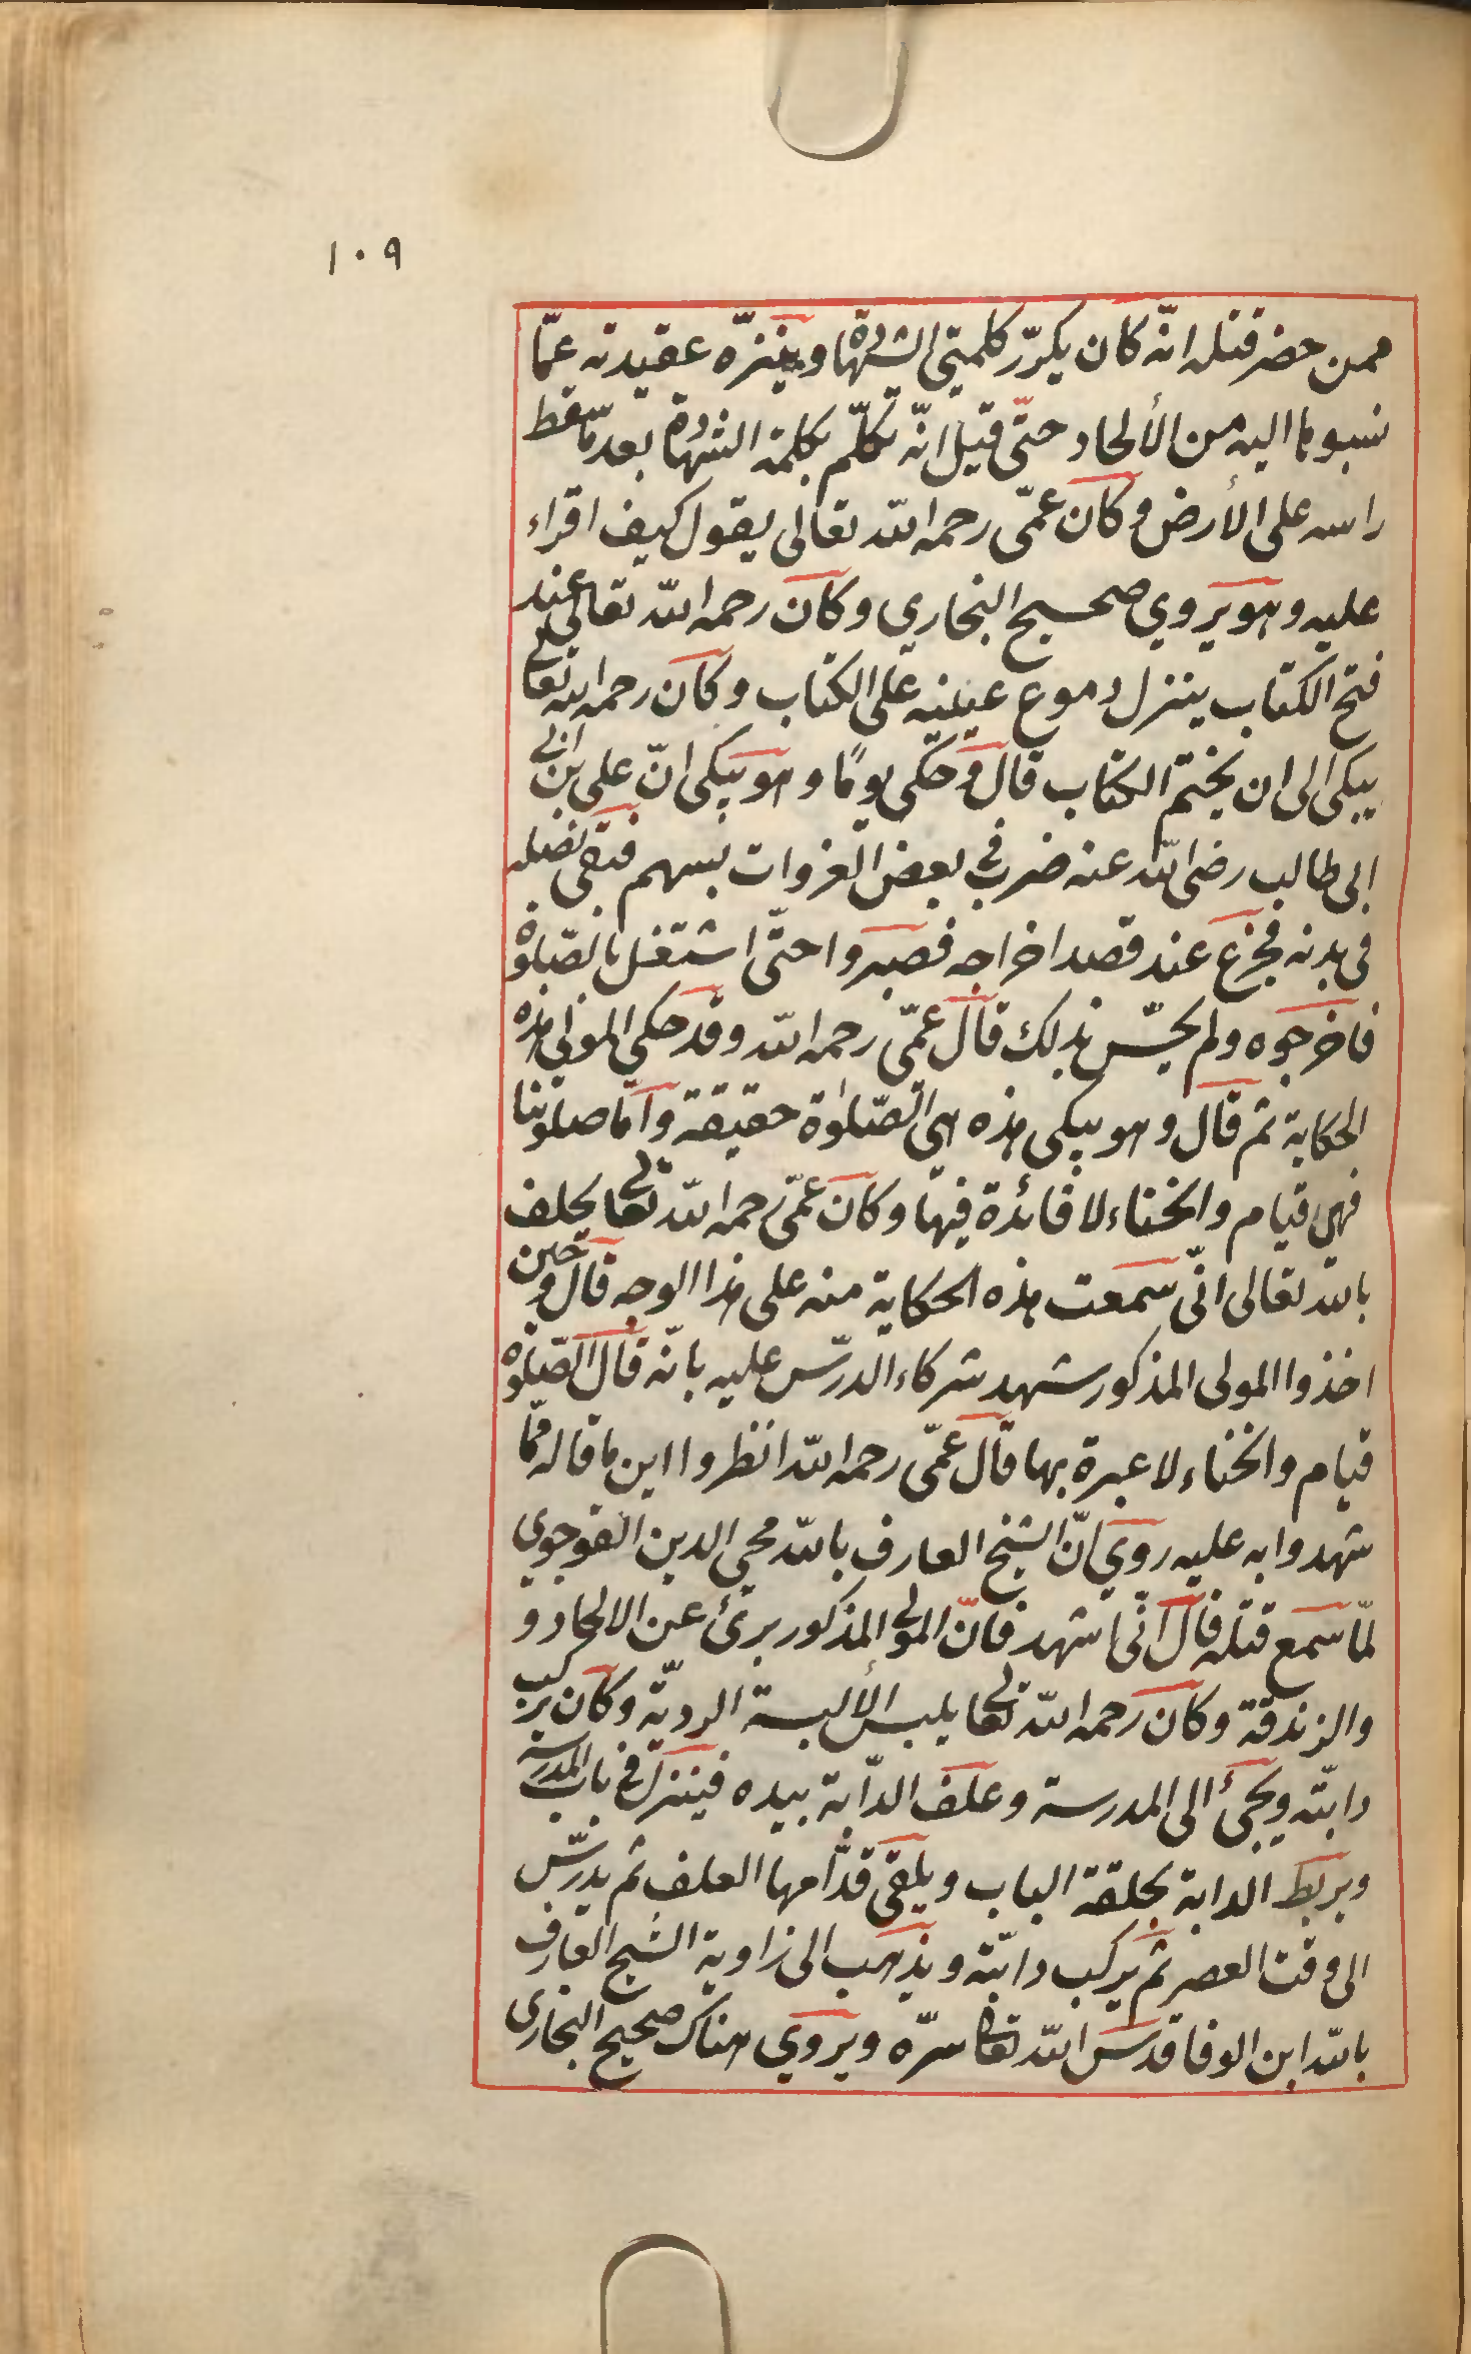 ١٠٩
ممن حضر قتله انّه كان يكرّر كلمتي الشهادة وينزّه عقيدته عمّا
نسبوها اليه من الألحاد حتّى قيل انّه تكلّم بكلمة الشهادة بعد ما سقط
راسه على الأرض وكان عمّى رحمه الله تعالى يقول كيف اقراء
عليه وهو يروي صحيح البخاري وكان رحمه الله تعالى عند
فتح الكتاب ينزل دموع عينيه على الكتاب وكان رحمه الله تعالى
يبكى الى ان يختم الكتاب قال وحكى يومًا وهو يبكى انّ على بن ابى
ابى طالب رضى الله عنه ضرب فى بعض الغزوات بسهم فبقى نصله
فى بدنه فجزع عند قصد اخراجه فصبروا حتّى اشتغل بالصّلوة
فاخرجوه ولم يحسّ بذلك قال عمّى رحمه الله وقد حكى المولى هذه
الحكاية ثم قال وهو يبكى هذه هى الصّلوة حقيقة وامّا صلوتنا
فهى قيام وانحناء لا فائدة فيها وكان عمّى رحمه الله تعالى يحلف
بالله تعالى انّى سمعت هذه الحكاية منه على هذا الوجه قال وحين
اخذوا المولى المذكور شهد شركاء الدرس عليه بانّه قال الصّلوة
قيام وانحناء لا عبرة بها قال عمّى رحمه الله انظروا اين ما قاله ممّا
شهدوا به عليه روي انّ الشيخ العارف بالله محى الدين القوجوى
لمّا سمع قتله قال انّى اشهد فانّ المولى المذكور برئ عن الالحاد و
والزندقة وكان رحمه الله تعالى يلبس الألبسة الرديّة وكان يركب
دابّته ويجئ الى المدرسة وعلف الدّابة بيده فينزل فى باب المدرسة
ويربط الدابة بحلقة الباب ويلقى قدّامها العلف ثم يدرّس
الى وقت العصر ثم يركب دابّته ويذهب الى زاوية الشيخ العارف
بالله ابن الوفا قدس الله تعالى سرّه ويروي هناك صحيح البخارى